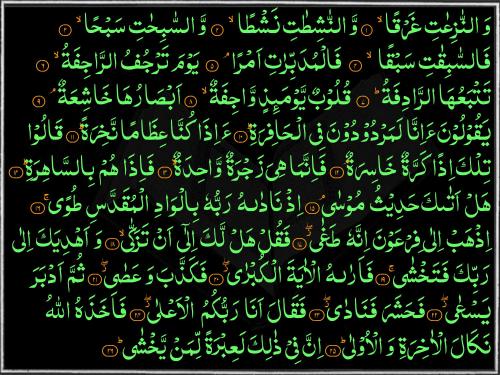 وَالنّٰزِعٰتِ غَرْقًا ۙ﴿۱﴾ وَّالنّٰشِطٰتِ نَشْطًا ۙ﴿۲﴾ وَّالسّٰبِحٰتِ سَبْحًا ۙ﴿۳﴾
فَالسّٰبِقٰتِ سَبْقًا ۙ﴿۴﴾ فَالْمُدَبِّرٰتِ اَمْرًا ۘ﴿۵﴾ يَوْمَ تَرْجُفُ الرَّاجِفَةُ ۙ﴿۶﴾
تَتْبَعُهَا الرَّادِفَةُ ؕ﴿۷﴾ قُلُوْبٌ يَّوْمَئِذٍ وَّاجِفَةٌ ۙ﴿۸﴾ اَبْصَارُهَا خَاشِعَةٌ ۘ﴿۹﴾
يَقُوْلُوْنَ ءَاِنَّا لَمَرْدُوْدُوْنَ فِى الْحَافِرَةِ ؕ﴿۱۰﴾ ءَاِذَا كُنَّا عِظَامًا نَّخِرَةً ؕ﴿۱۱﴾ قَالُوْا
تِلْكَ اِذًا كَرَّةٌ خَاسِرَةٌ ۘ﴿۱۲﴾ فَاِنَّمَا هِىَ زَجْرَةٌ وَّاحِدَةٌ ۙ﴿۱۳﴾ فَاِذَا هُمْ بِالسَّاهِرَةِ ؕ﴿۱۴﴾
هَلْ اَتٰٮكَ حَدِيْثُ مُوْسٰى ۘ﴿۱۵﴾ اِذْ نَادٰٮهُ رَبُّهٗ بِالْوَادِ الْمُقَدَّسِ طُوًى ۚ﴿۱۶﴾
اِذْهَبْ اِلٰى فِرْعَوْنَ اِنَّهٗ طَغٰى ۖ﴿۱۷﴾ فَقُلْ هَلْ لَّكَ اِلٰٓى اَنْ تَزَكّٰى ۙ﴿۱۸﴾ وَاَهْدِيَكَ اِلٰى
رَبِّكَ فَتَخْشٰى ۚ﴿۱۹﴾ فَاَرٰٮهُ الْاٰيَةَ الْكُبْرٰى ۖ﴿۲۰﴾ فَكَذَّبَ وَعَصٰى ۖ﴿۲۱﴾ ثُمَّ اَدْبَرَ
يَسْعٰى ۖ﴿۲۲﴾ فَحَشَرَ فَنَادٰى ۖ﴿۲۳﴾ فَقَالَ اَنَا رَبُّكُمُ الْاَعْلٰى ۖ﴿۲۴﴾ فَاَخَذَهُ اللّٰهُ
نَكَالَ الْاٰخِرَةِ وَالْاُوْلٰى ؕ﴿۲۵﴾ اِنَّ فِىْ ذٰلِكَ لَعِبْرَةً لِّمَنْ يَّخْشٰى ؕ﴿۲۶﴾